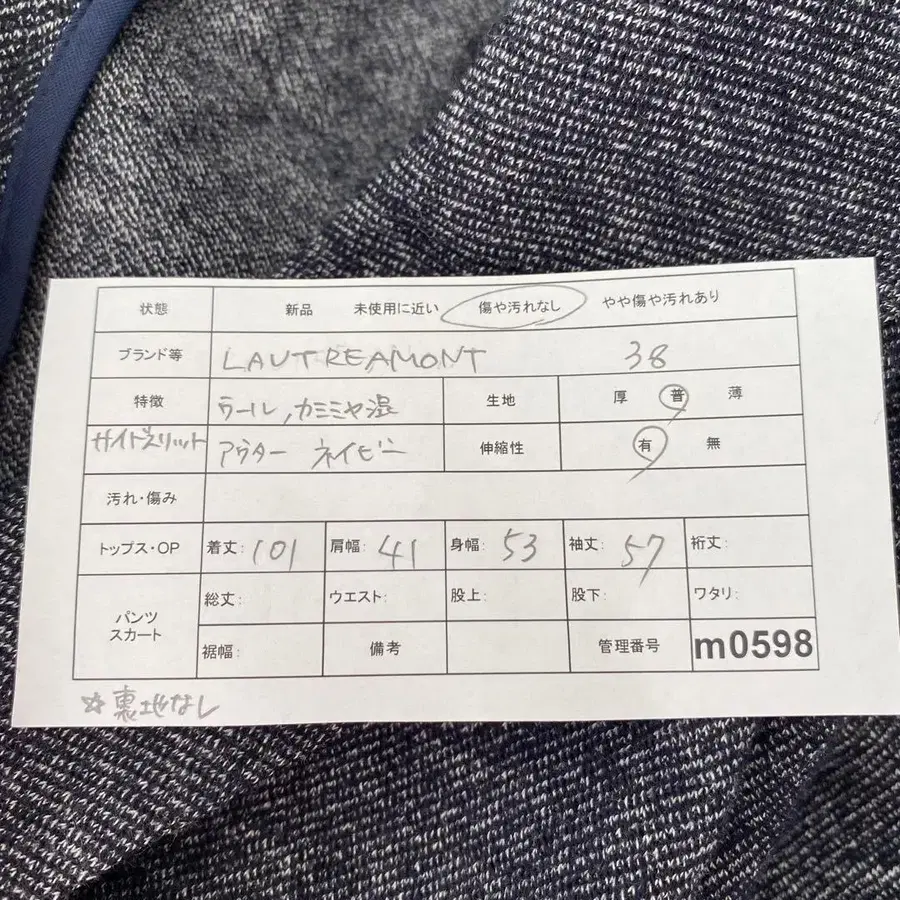 状態 新品 未使用に近い 傷や汚れなし やや傷や汚れあり
ブランド等 LAUTREAMONT 38
特徴 ウール,カミミヤ混 生地 厚 普 薄
サイドスリット アウター ネイビー 伸縮性 有 無
汚れ・傷み
トップス・OP 着丈: 101 肩幅: 41 身幅: 53 袖丈: 57 裄丈:
パンツ スカート 総丈: ウエスト: 股上: 股下: ワタリ:
裾幅: 備考 管理番号 m0598
☆裏地なし